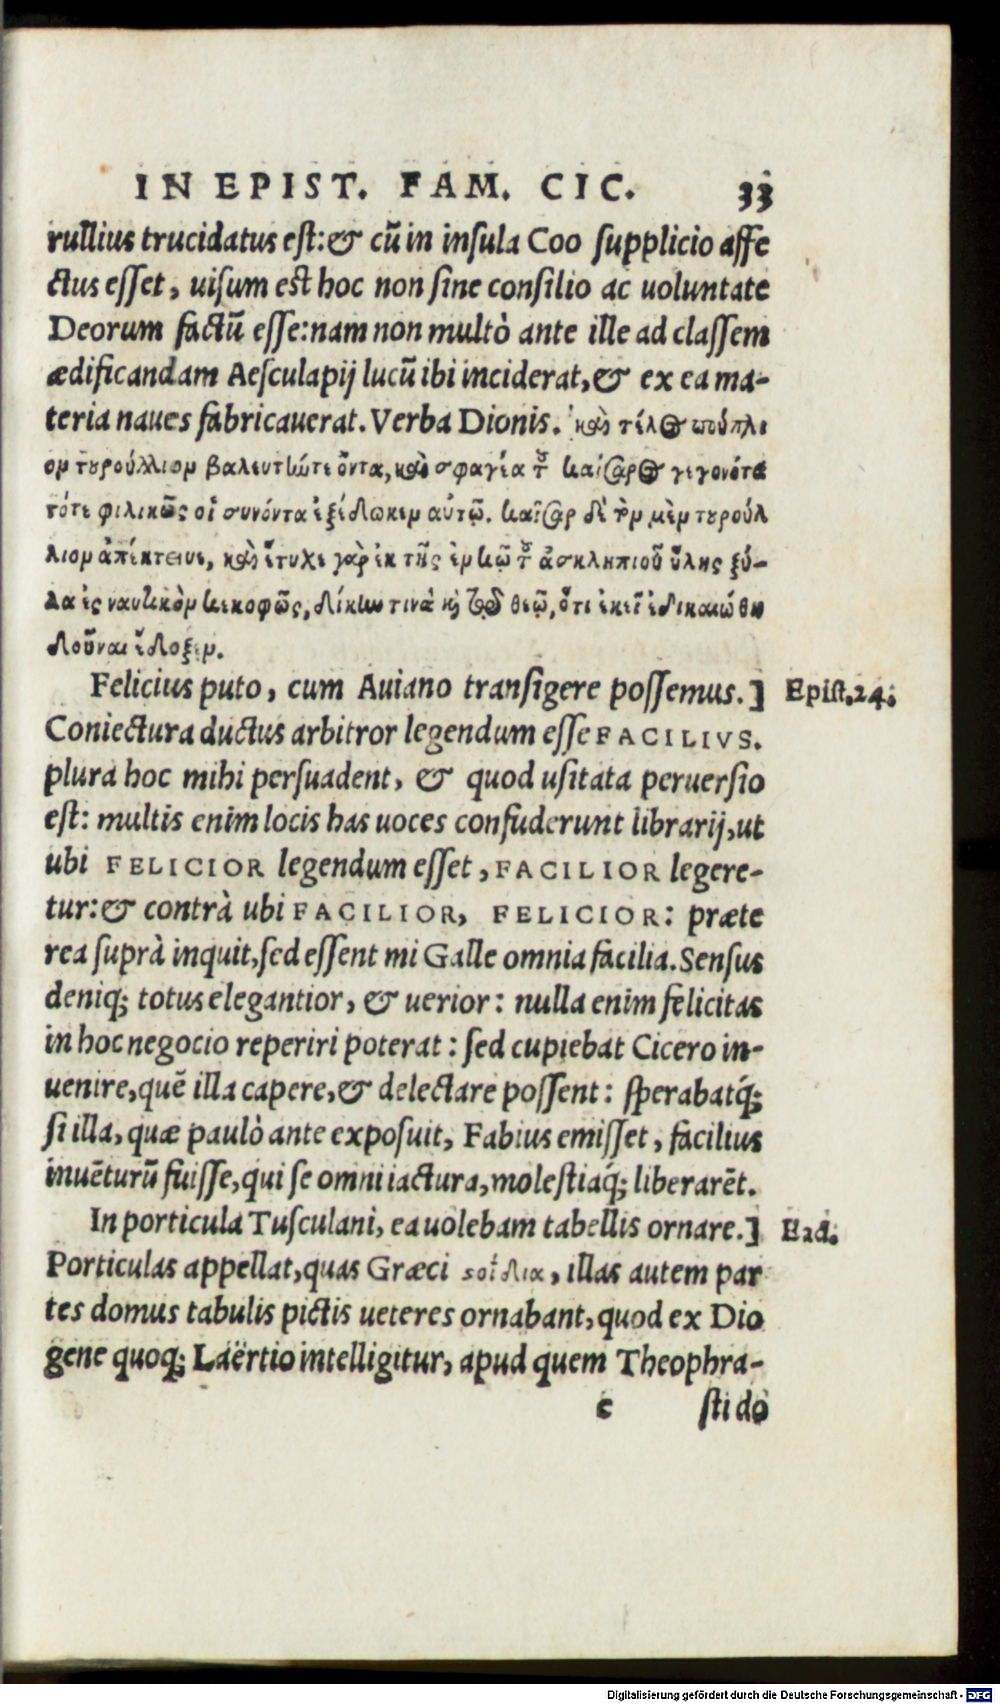 IN EPIST. FAM. CIC. 33
rullius trucidatus est: & cū in insula Coo supplicio affe
ctus esset, uisum est hoc non sine consilio ac uoluntate
Deorum factū esse: nam non multò ante ille ad classem
ædificandam Aesculapij lucū ibi inciderat, & ex ea ma-
teria naues fabricauerat. Verba Dionis. καὶ τέλος πούπλι
ον τυρούλλιον βαλευτίω τε ὄντα, καὶ σφαγέα τοῦ καίσαρος γεγονότα
τότε φιλικῶς οἱ συνόντα ἐξέδωκεν αὐτῷ. καῖσαρ δὲ τὸν μὲν τυρούλ
λιον ἀπέκτεινε, καὶ ἔτυχε γὰρ ἐκ τῆς ἐν κῷ τοῦ ἀσκληπιοῦ ὕλης ξύ-
λα ἐς ναυτικὸν κεκοφῶς, δίκίω τινὰ καὶ τῷ θεῷ, ὅτι ἐκεῖ ἐδικαιώθη
δοῦναι ἔδοξεν.
Felicius puto, cum Auiano transigere possemus.] Epist. 24.
Coniectura ductus arbitror legendum esse FACILIVS.
plura hoc mihi persuadent, & quod usitata peruersio
est: multis enim locis has uoces confuderunt librarij, ut
ubi FELICIOR legendum esset, FACILIOR legere-
tur: & contrà ubi FACILIOR, FELICIOR: præte
rea suprà inquit, sed essent mi Galle omnia facilia. Sensus
deniq; totus elegantior, & uerior: nulla enim felicitas
in hoc negocio reperiri poterat: sed cupiebat Cicero in-
uenire, quē illa capere, & delectare possent: sperabatq́;
si illa, quæ paulò ante exposuit, Fabius emisset, facilius
inuēturū fuisse, qui se omni iactura, molestiaq́; liberarēt.
In porticula Tusculani, ea uolebam tabellis ornare.] Ead.
Porticulas appellat, quas Græci στοΐδια, illas autem par
tes domus tabulis pictis ueteres ornabant, quod ex Dio
gene quoq; Laërtio intelligitur, apud quem Theophra-
c sti do
Digitalisierung gefördert durch die Deutsche Forschungsgemeinschaft - DFG